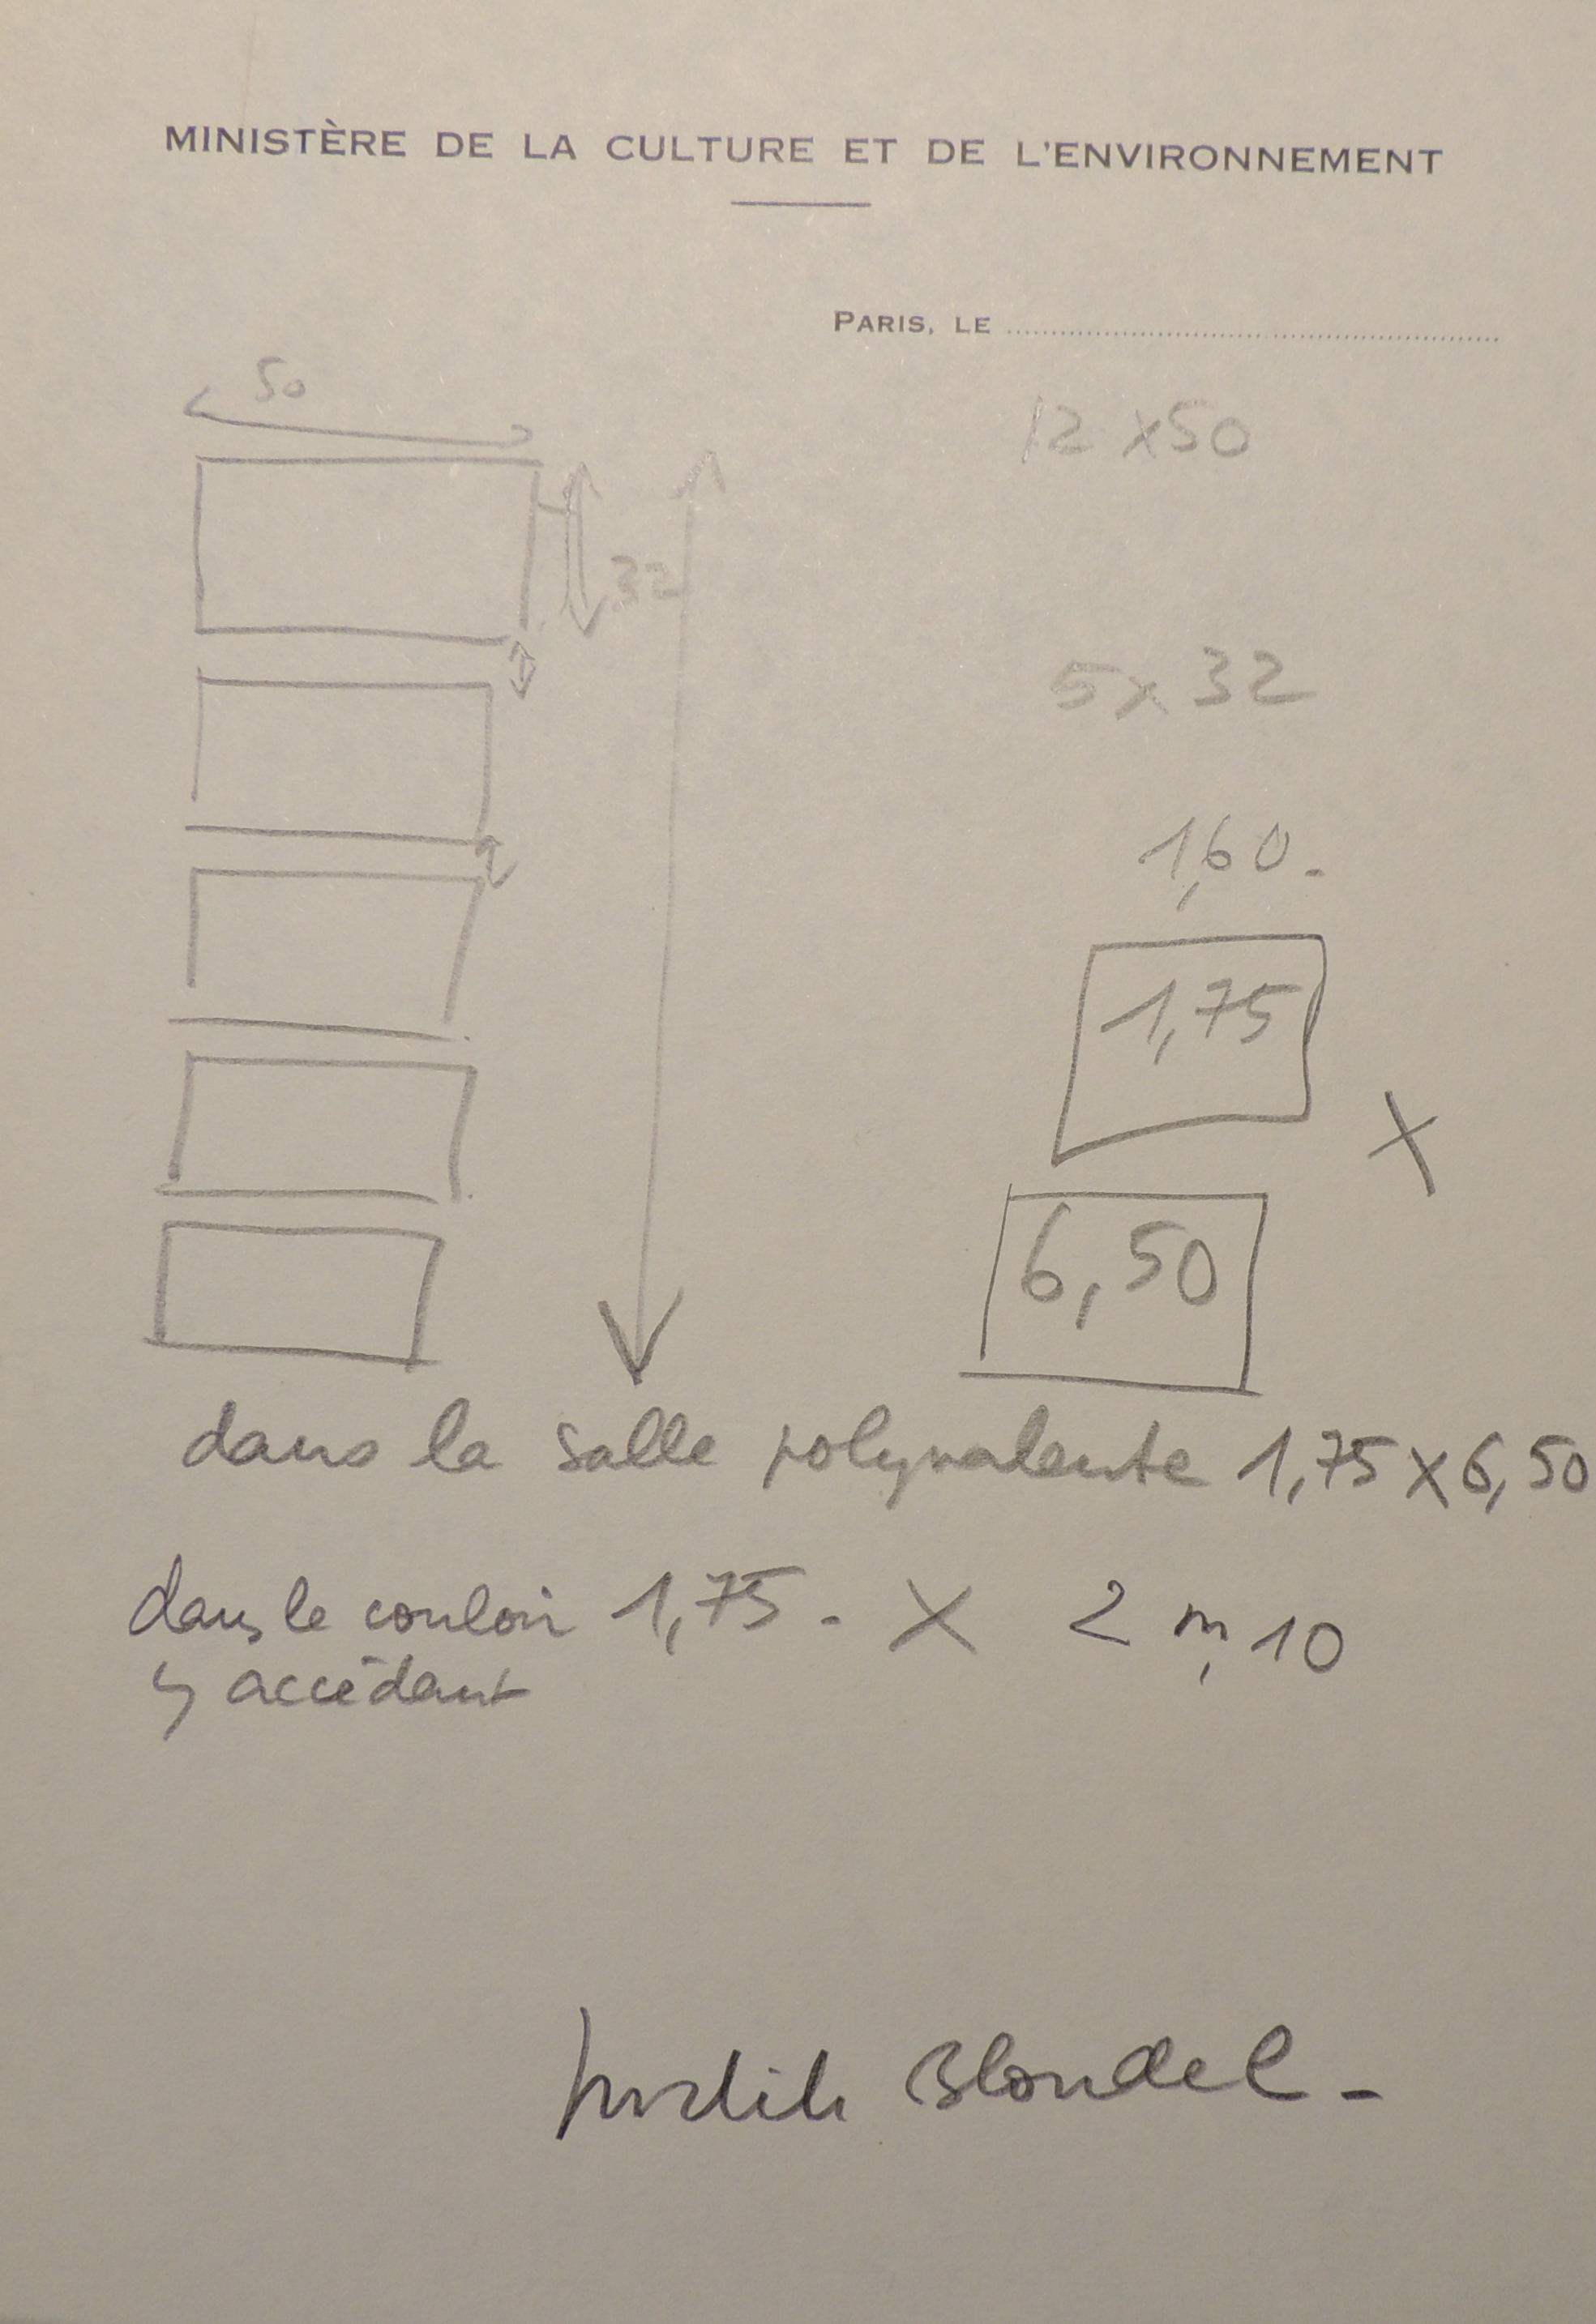 MINISTÈRE DE LA CULTURE ET DE L'ENVIRONNEMENT
PARIS, LE
50
12 x 50
32
5 x 32
1,60.
1,75
X
6,50
dans la salle polyvalente 1,75 X 6,50
dans le couloir 1,75. X 2 m, 10
y accédant
Blondel -